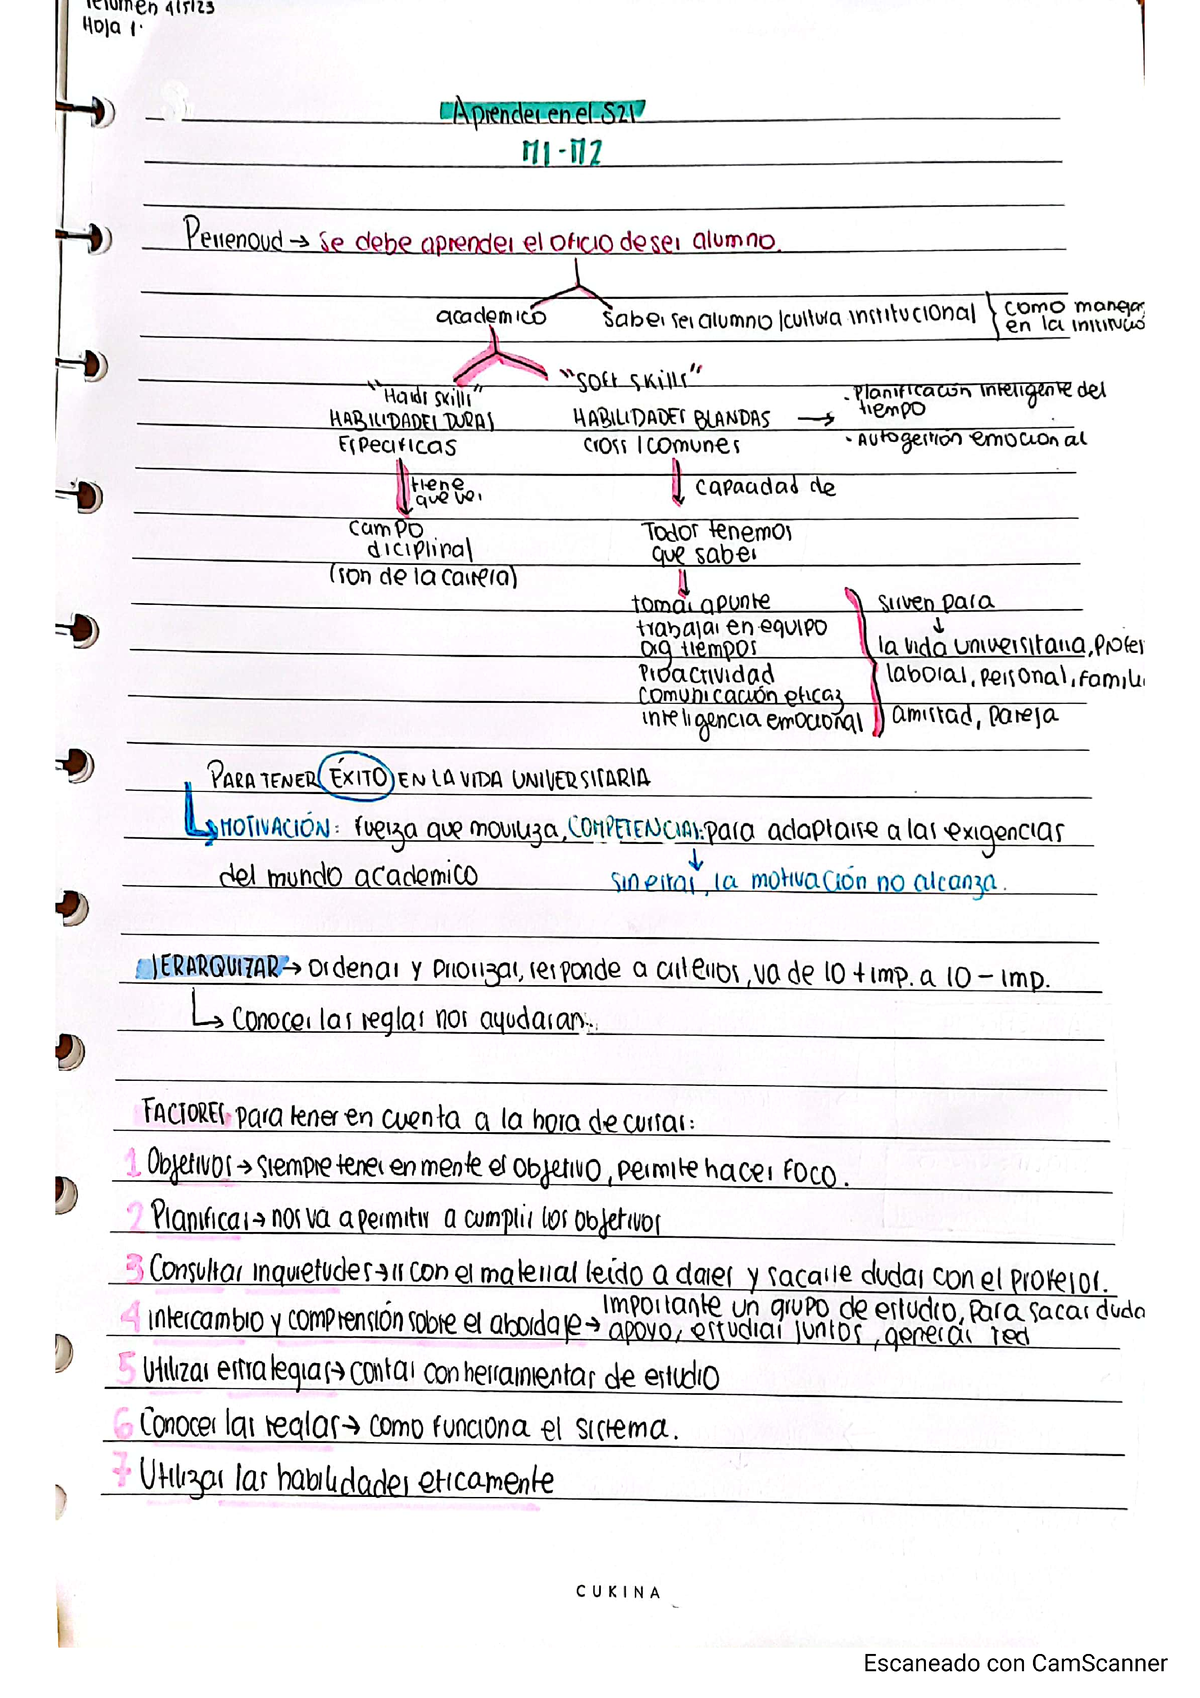 resumen 4/5/23
Hoja 1.
Aprender en el S21
M1-M2
Perrenoud → se debe aprender el oficio de ser alumno.
academico
saber ser alumno/cultura institucional
como manejar
en la institució
"Hards skills"
HABILIDADES DURAS
Especificas
"soft skills"
HABILIDADES BLANDAS →
cross/comunes
. Planificación inteligente del
tiempo
. Autogestión emocional
tiene
que ver
capacidad de
campo
diciplinal
(son de la carrera)
Todos tenemos
que saber
tomar apunte
trabajar en equipo
org tiempos
Proactividad
comunicación eficaz
inteligencia emocional
sirven para
la vida universitaria, profes
laboral, personal, famili
amistad, pareja
PARA TENER ÉXITO EN LA VIDA UNIVERSITARIA
MOTIVACIÓN: fuerza que moviliza, COMPETENCIAS: para adaptarse a las exigencias
del mundo academico
sin estas, la motivación no alcanza.
JERARQUIZAR → ordenar y priorizar, responde a criterios, va de lo + imp. a lo - imp.
Conocer las reglas nos ayudaran.
FACTORES para tener en cuenta a la hora de cursar:
1 Objetivos → siempre tener en mente el objetivo, permite hacer foco.
2 Planificar → nos va a permitir a cumplir los objetivos
3 Consultar inquietudes → ir con el material leido a clases y sacarle dudas con el profesor.
4 intercambio y comprensión sobre el abordaje → importante un grupo de estudio, para sacar duda
apoyo, estudiar juntos, generar red
5 Utilizar estrategias → contar con herramientas de estudio
6 Conocer las reglas → como funciona el sistema.
7 Utilizar las habilidades eticamente
CUKINA
Escaneado con CamScanner